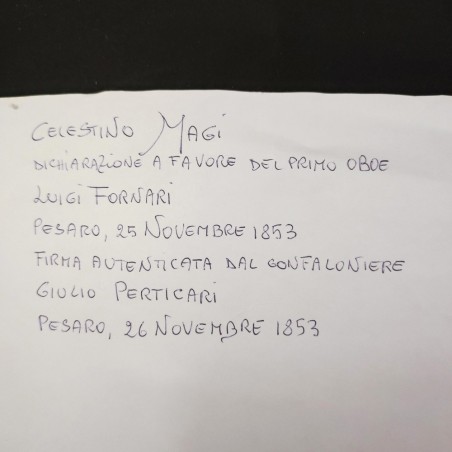 CELESTINO MAGI
DICHIARAZIONE A FAVORE DEL PRIMO OBOE
LUIGI FORNARI
PESARO, 25 NOVEMBRE 1853
FIRMA AUTENTICATA DAL GONFALONIERE
GIULIO PERTICARI
PESARO, 26 NOVEMBRE 1853